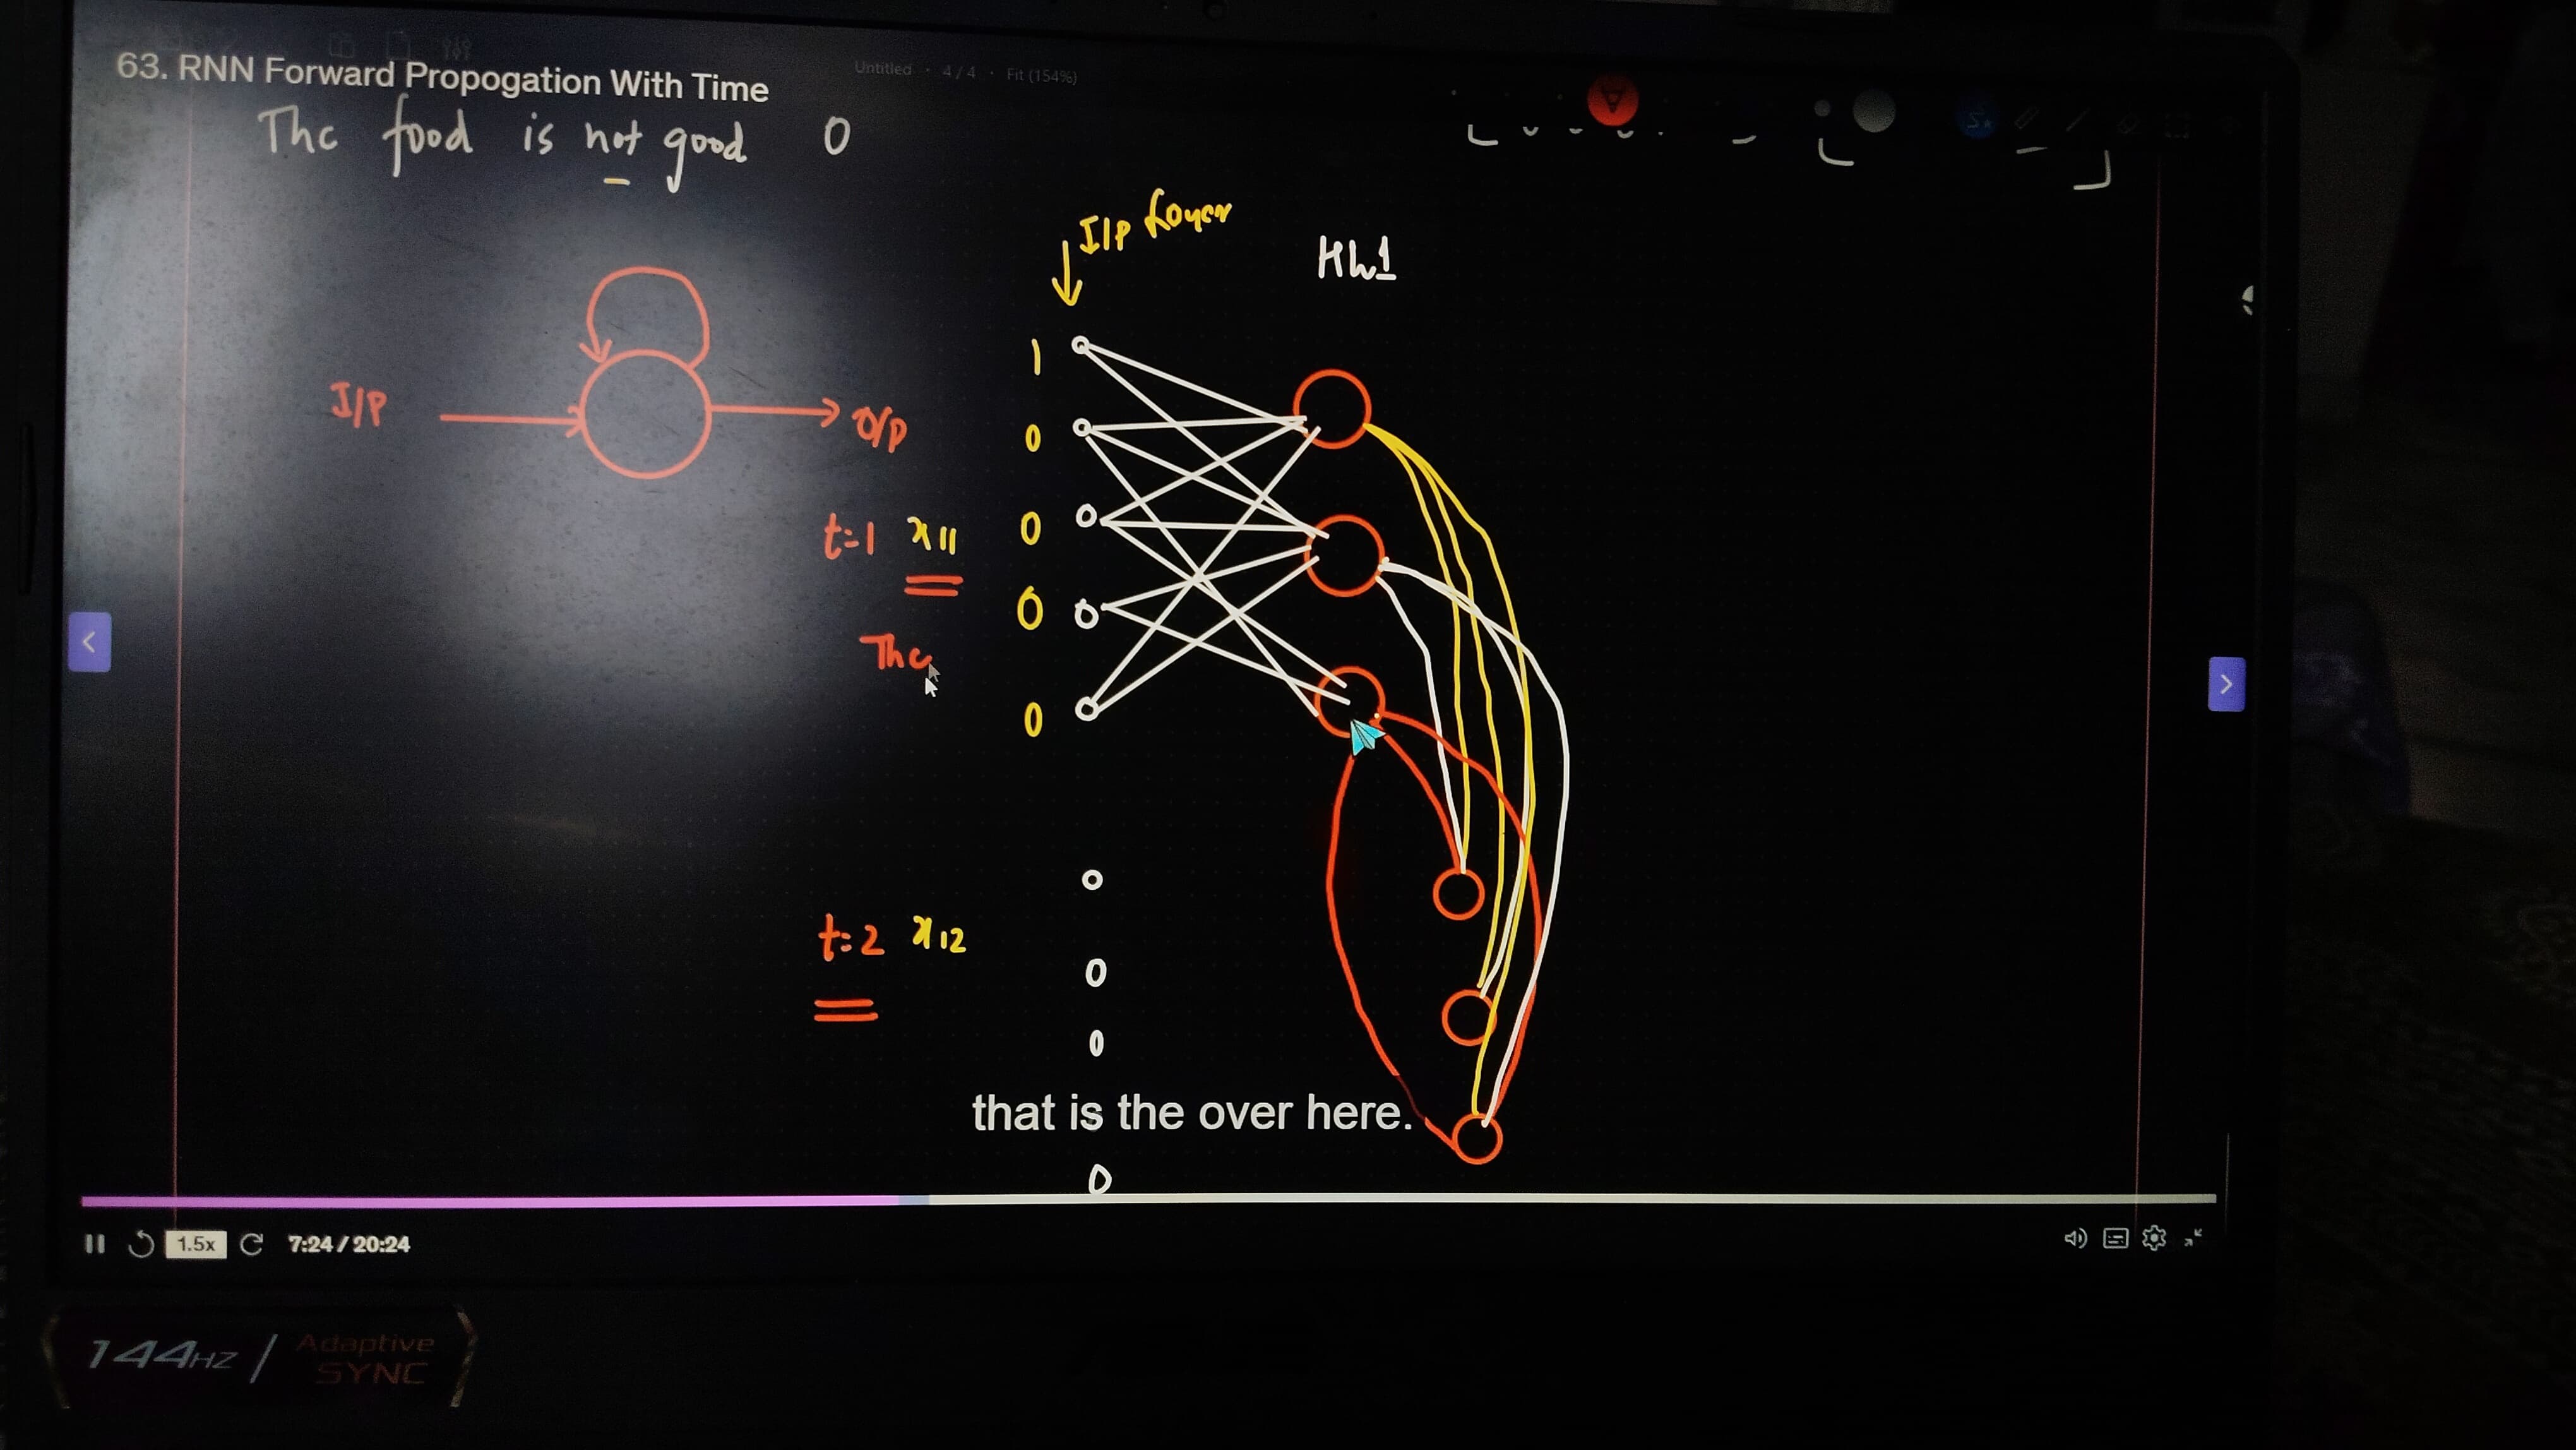 63. RNN Forward Propogation With Time
Untitled · 4 / 4 · Fit (154%)
The food is not good 0
I/P Layer
HL1
1
I/P
O/P
0
t=1 x11
0
0
The
0
o
t=2 x12
0
0
that is the over here.
0
1.5x
7:24 / 20:24
144Hz / Adaptive
SYNC